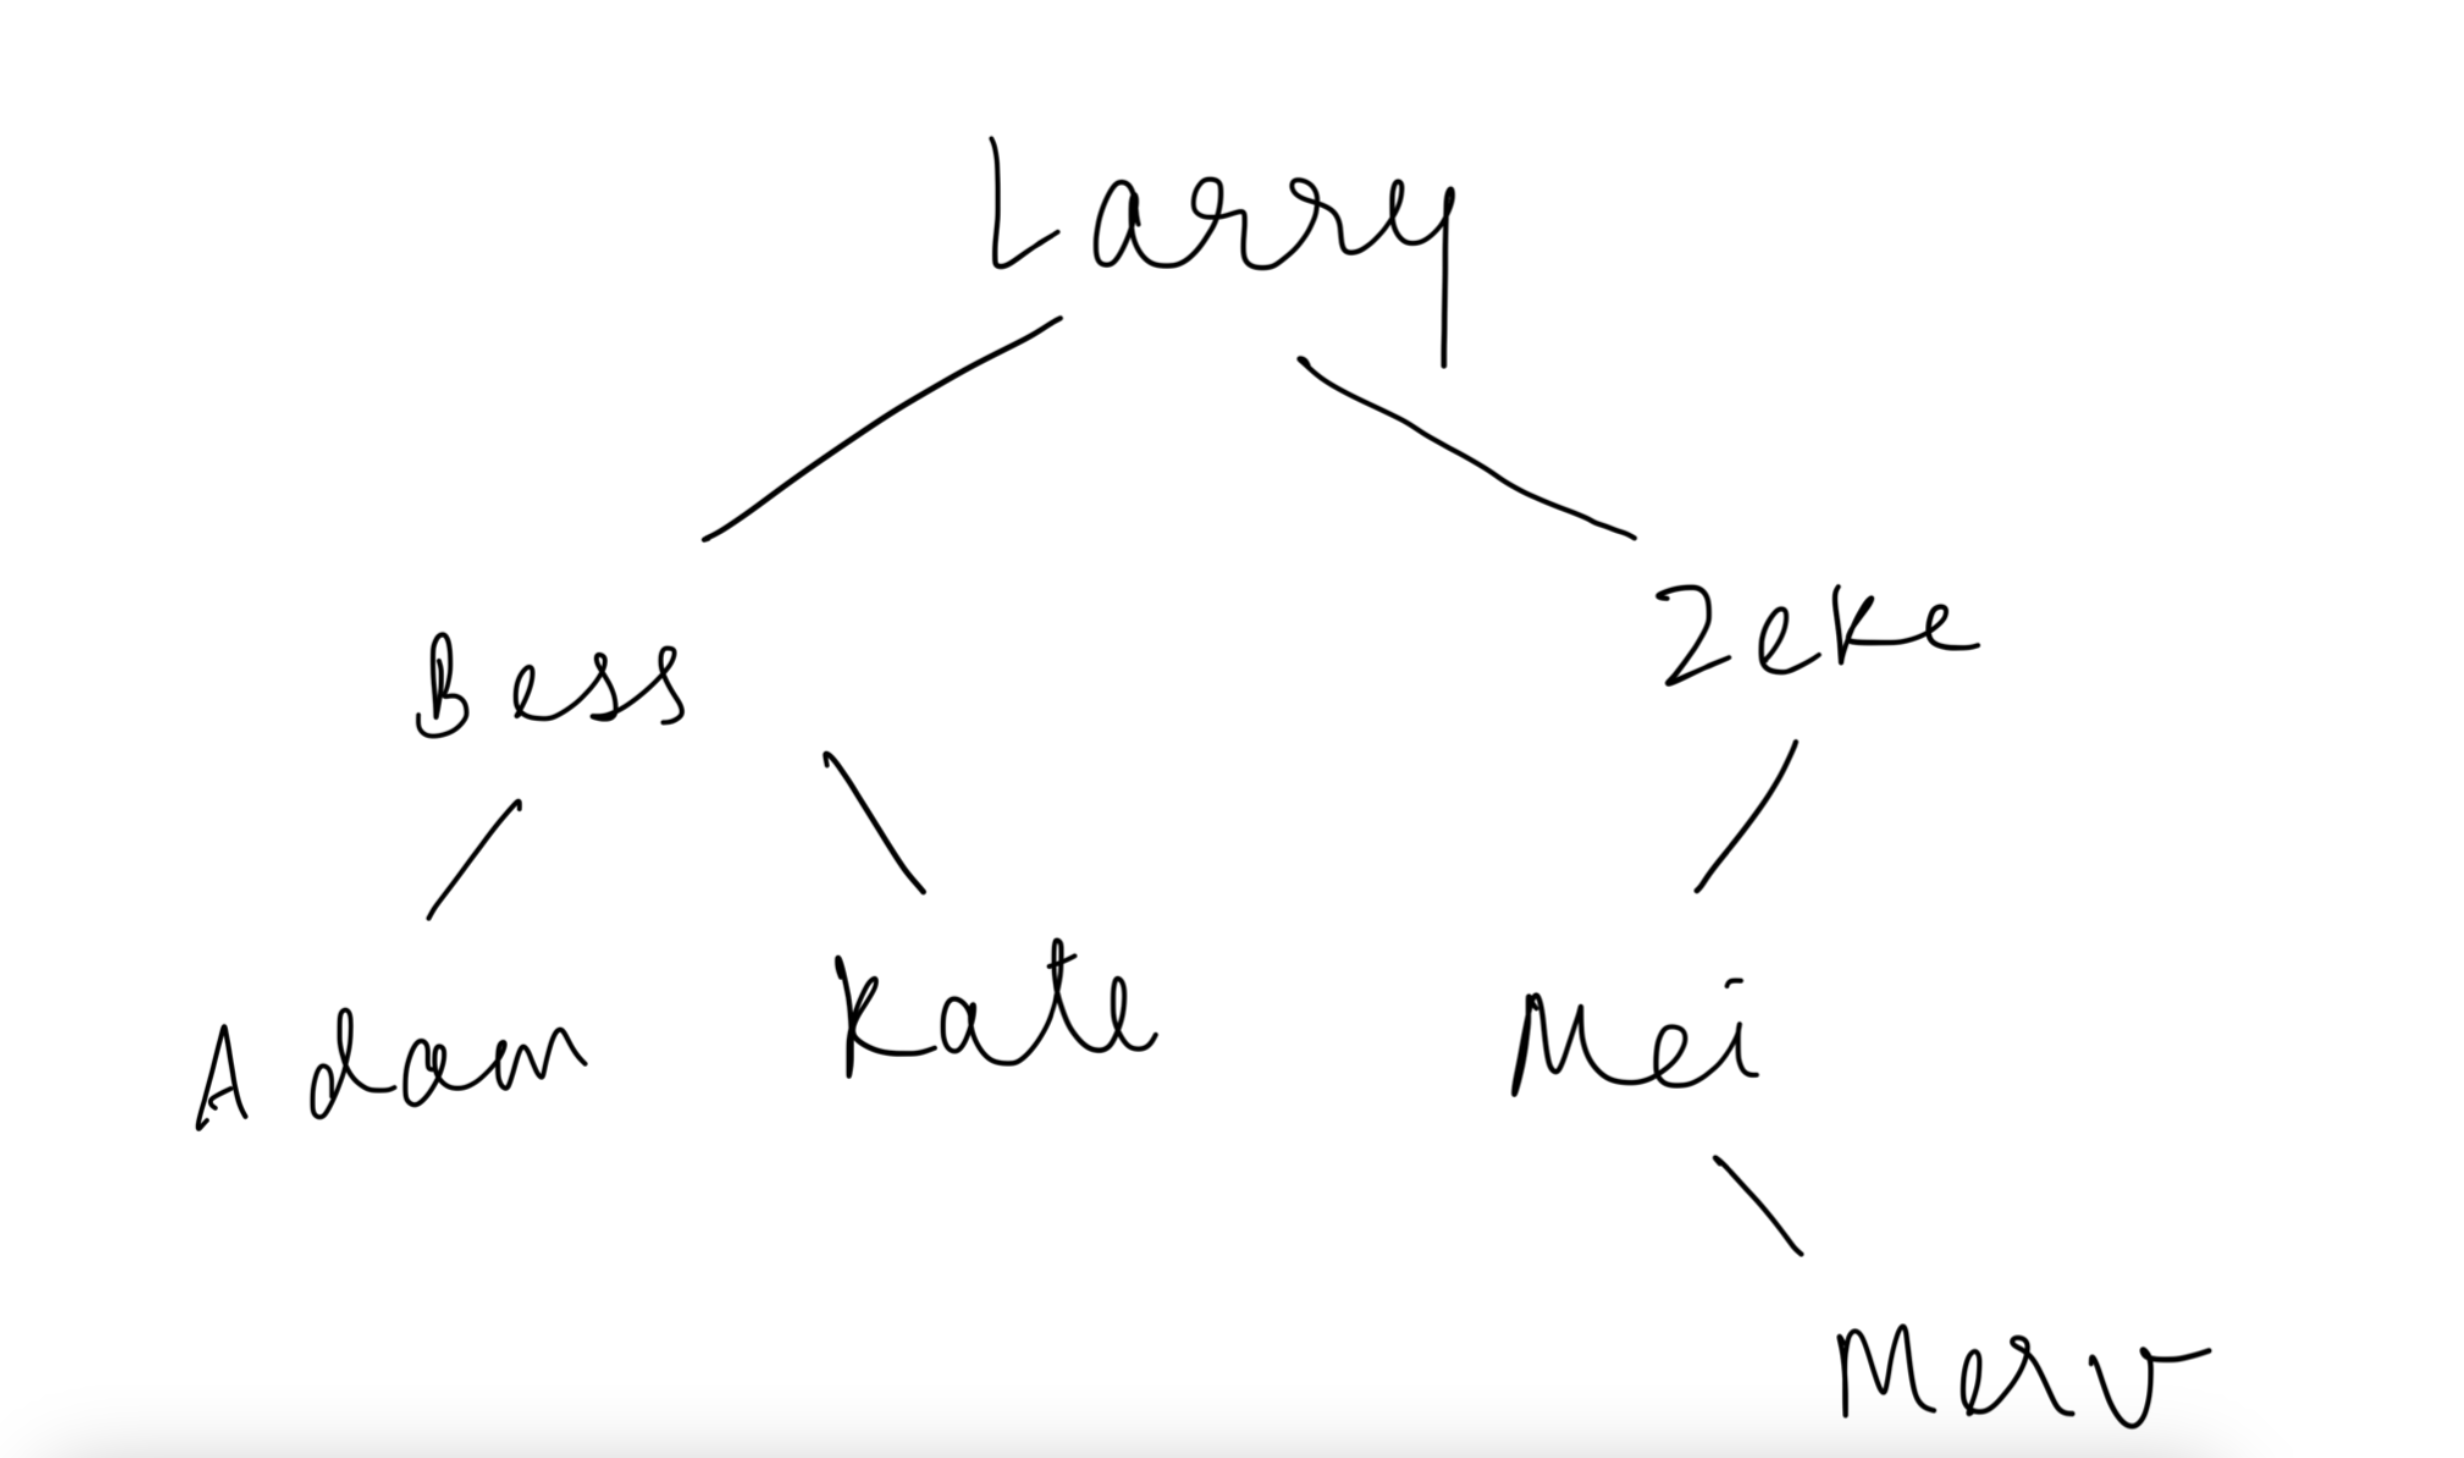 Larry
Bess Zeke
Adam Kate Mei
Merv